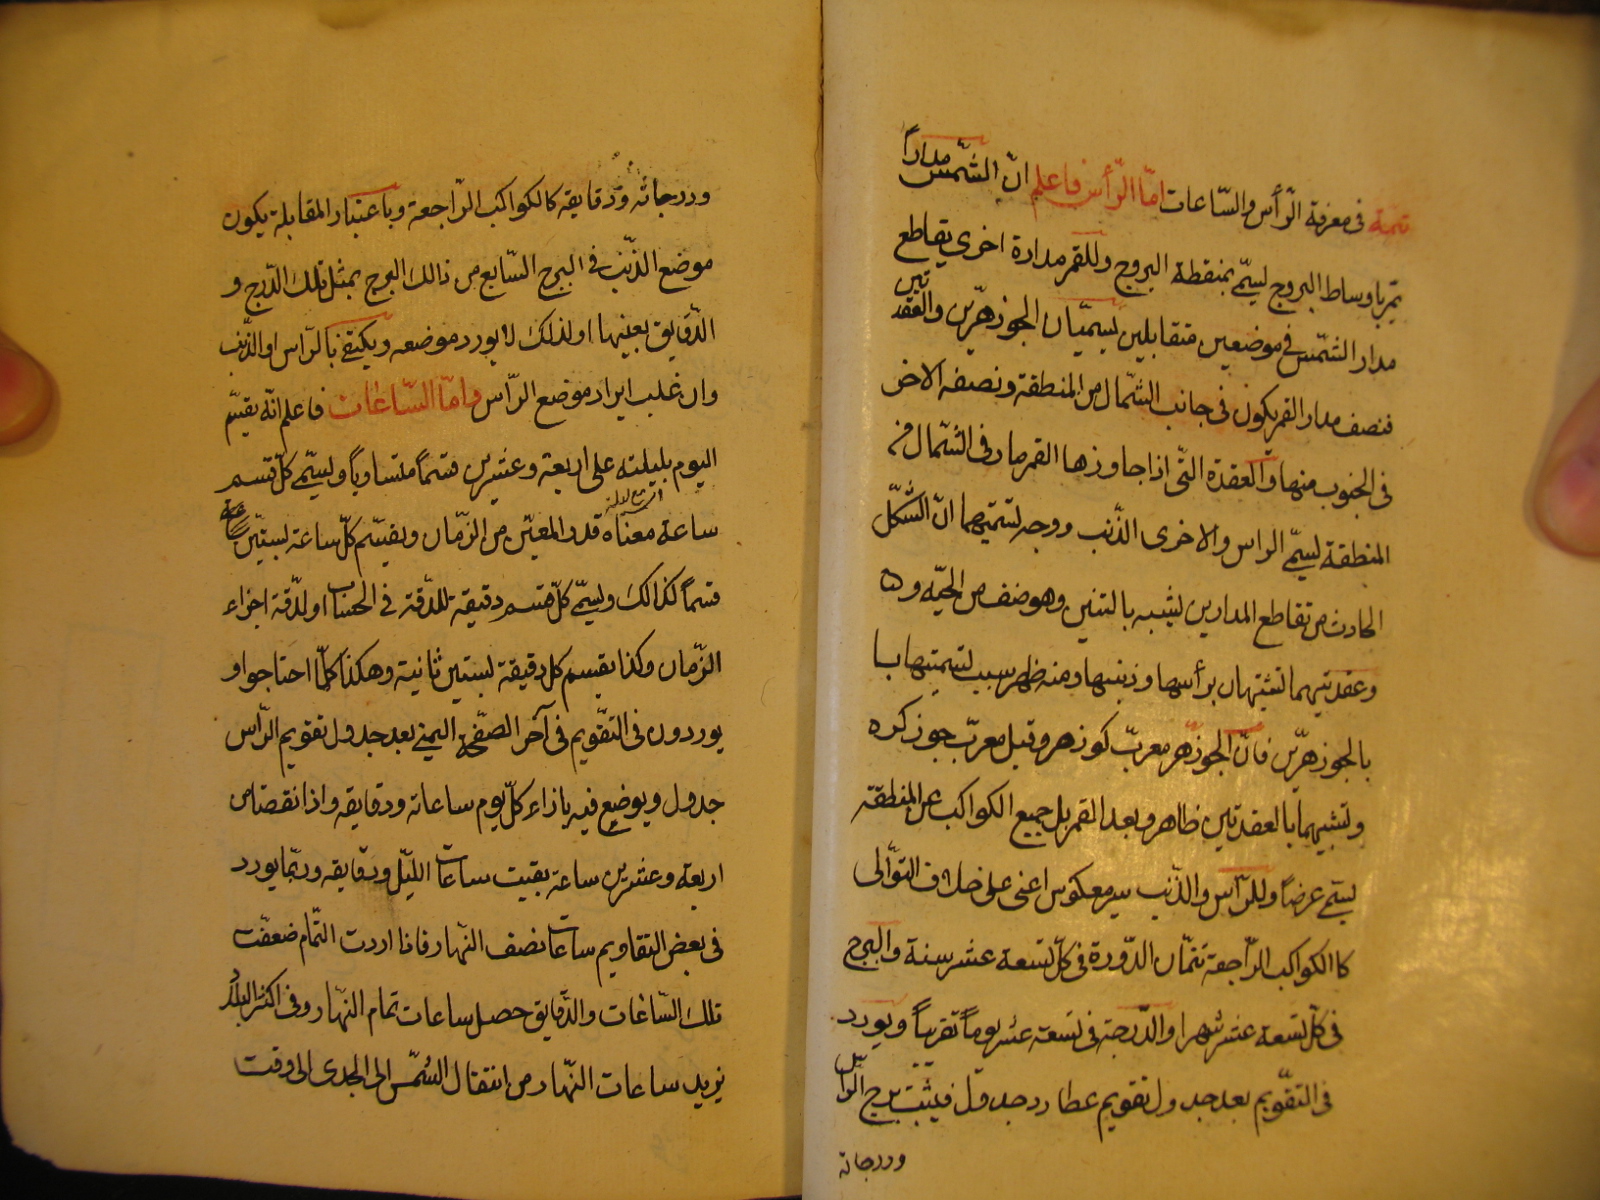 تتمة فى معرفة الرّأس والسّاعات امّا الرّأس فاعلم انّ الشّمس مداراً
يمرّ باوساط البروج ليسمّى بمنقطة البروج وللقمر مدارة اخرى يقاطع
مدار الشّمس فى موضعين متقابلين يسميّان الجوزهرّين والعقدتين
فنصف مدار القمر يكون فى جانب الشّمال من المنطقة ونصفه الاخر
فى الجنوب منها والعقدة الّتى اذا جاوزها القمر صار فى الشّمال من
المنطقة يسمّى الراس والاخرى الذّنب ووجه تسميتهما انّ الشّكل
الحادث من تقاطع المدارين يشبه بالتنين وهو صنف من الحيّه و
وعقدتيهما تشبهان برأسها وذنبها ومنه ظهر سبب تسميتها با
بالجوزهرّين فانّ الجوزهر معربّ كوزهر وقيل معربّ جوزكره
وتشبيهما بالعقدتين ظاهر وبعد القمر بل جميع الكواكب عن المنطقة
يسمّى عرضاً وللرّاس والذّنب سير معكوس اعنى على خلاف التوّالى
كا الكواكب الرّاجعة تتمّان الدّورة فى كلّ تسعة عشر سنة والبرج
فى كلّ تسعة عشر شهرا والدّرجة فى تسعة عشر يوماً تقريباً ويورد
فى التّقويم بعد جدول تقويم عطارد جدول فيثبت برج الرّاس
ودرجاته
ودرجاته ودقايقه كالكواكب الرّاجعة وباعتبار المقابلة يكون
موضع الذّنب فى البرج السّابع من ذالك البرج بمثل تلك الدّرج و
الدّقايق بعينها اولذلك لا يورد موضعه ويكتفى بالرّاس او الذّنب
وان غلب ايراد موضع الرّاس وامّا السّاعات فاعلم انّه يقسّم
اليوم بليلته على اربعة وعشرين قسماً متساوياً ويسمّى كلّ قسم
ساعة معناه قدر المعيّن من الزّمان ويقسّم كلّ ساعة لستّين
قسماً كذالك ويسمّى كلّ قسم دقيقة للدّقة فى الحساب اولدّقة اجزاء
الزّمان وكذا يقسم كل دقيقة لستين ثانية وهكذا كلّما احتاجوا و
يوردون فى التّقويم فى آخر الصفّحة اليمنى بعد جدول تقويم الرّاس
جدول ويوضع فيه بازاء كلّ يوم ساعاته ودقايقه واذا نقصتا من
اربعة وعشرين ساعة بقيت ساعات الليّل ودقايقه وربّما يورد
فى بعض التقاويم ساعات نصف النّهار فاذا اردت التّمام ضعفت
تلك السّاعات والدّقايق حصل ساعات تمام النّهار وفى اكثر البلاد
يزيد ساعات النّهار من انتقال الشّمس الى الجدى الى وقت